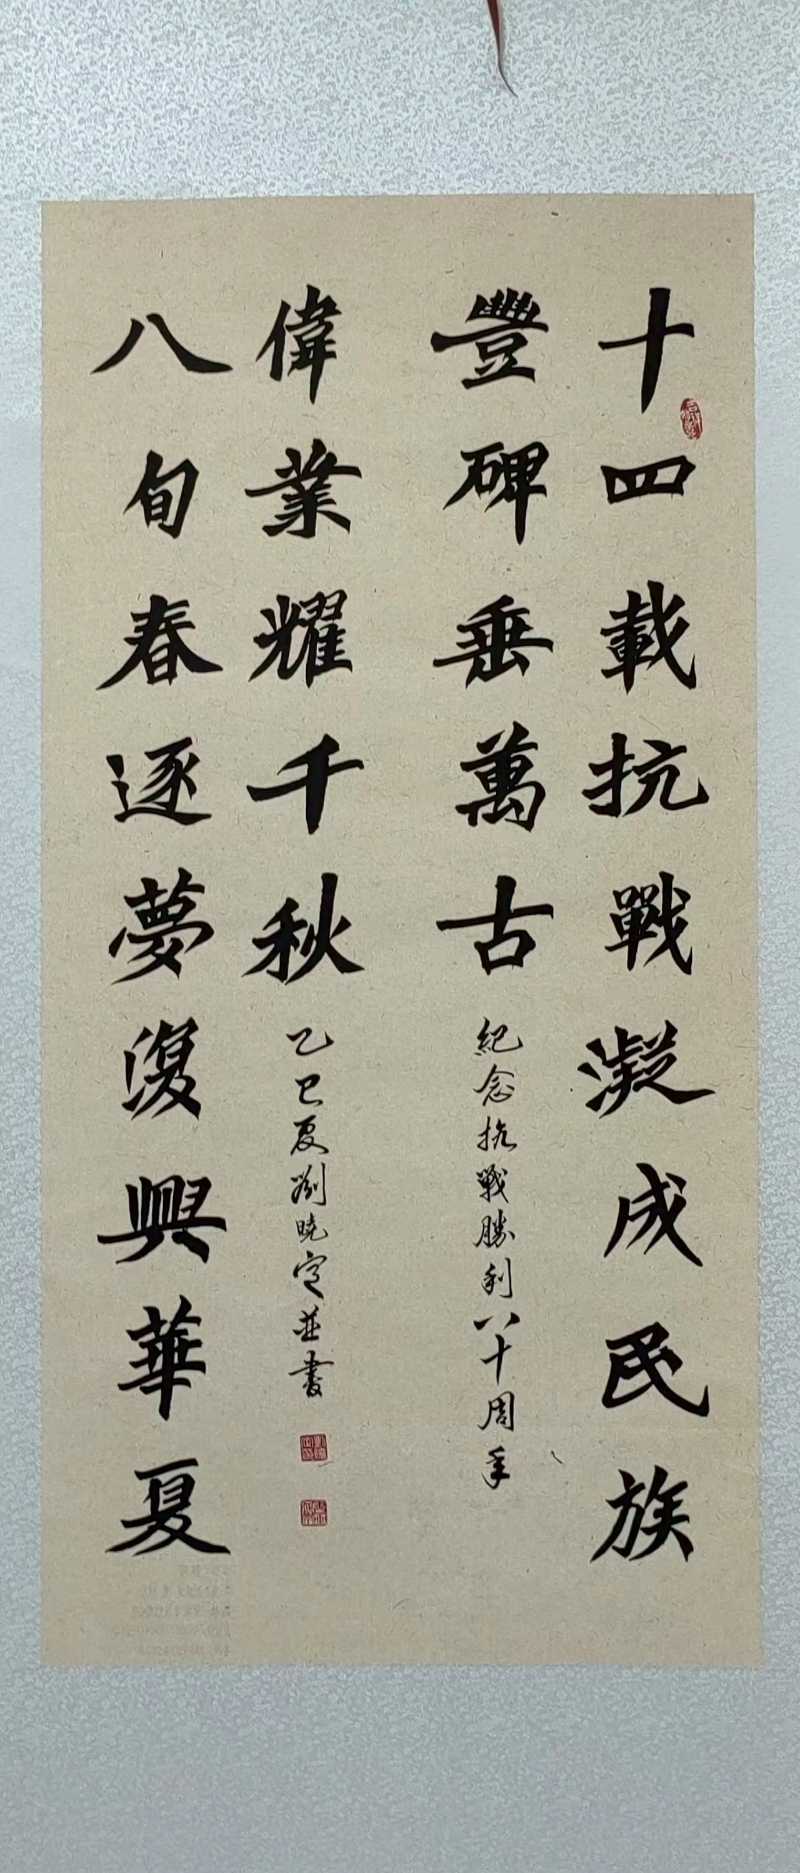 十四載抗戰凝成民族
豐碑垂萬古
紀念抗戰勝利八十周年
八旬春逐夢復興華夏
偉業耀千秋
乙巳夏劉曉定並書